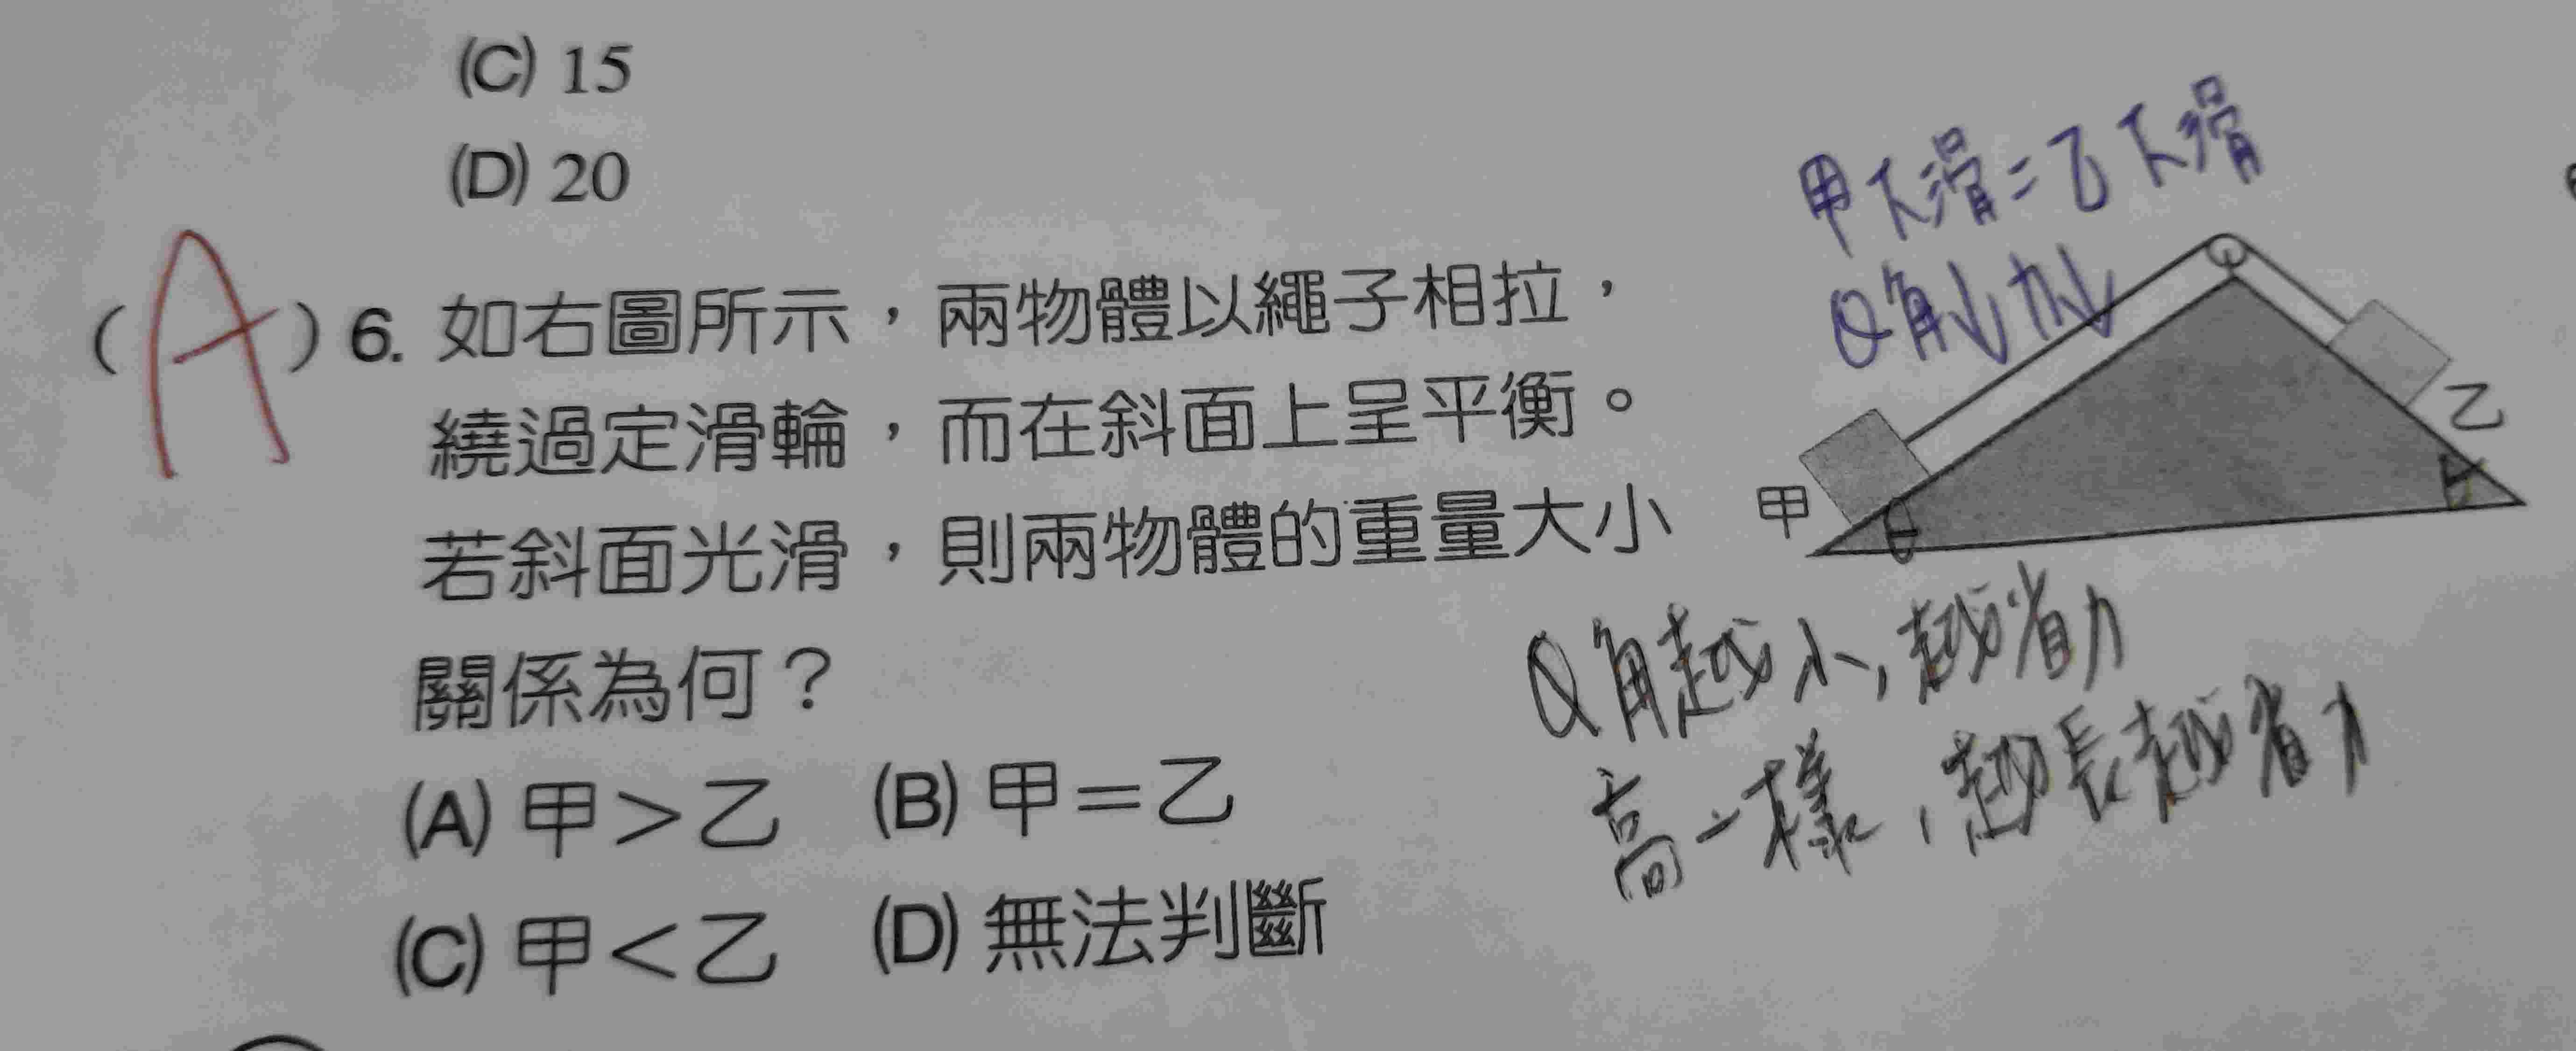 (C) 15
(D) 20
(A) 6. 如右圖所示，兩物體以繩子相拉，
繞過定滑輪，而在斜面上呈平衡。
若斜面光滑，則兩物體的重量大小
關係為何？
(A) 甲＞乙 (B) 甲＝乙
(C) 甲＜乙 (D) 無法判斷
甲下滑=乙下滑
θ角↓力↓
乙
甲
θ
θ角越小，越省力
高一樣，越長越省力